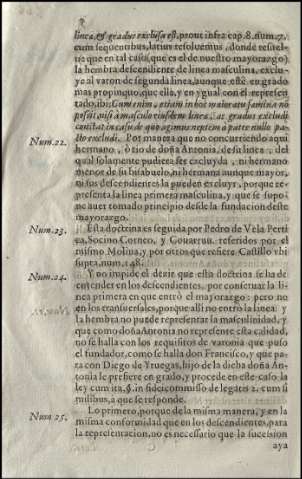 linea, et gradus exclusa est, prout infra cap. 8. num. 7.
cum sequentibus, latius resoluemus, donde resuel-
ue que en tal caso (que es el de nuestro mayorazgo)
la hembra descendiente de linea masculina, exclu-
ye al varon de segunda linea, aunque esté en grado
mas propinquo, que ella, y en ygual con el represen-
tado, ibi: Cum enim, etiam in hoc maioratu fæmina nõ
possit nisi à masculo eiusdem lineæ, ac gradus excludi
constat in casu de quo agimus neptem à patre nullo pa-
cto excludi. Por manera que no concurriendo aqui
Num. 22.
hermano, ò tio de doña Antonia, de su linea, del
qual solamente pudiera ser excluyda, ni hermano
menor de su bisabuelo, ni hermana aunque mayor,
ni sus descendientes la pueden excluyr, porque re-
presenta la linea primera masculina, y que se supo-
ne auer tomado principio desde la fundacion deste
mayorazgo.
Num. 23.
Esta doctrina es seguida por Pedro de Vela Pertica,
Socino, Corneo, y Gouarruu. referidos por el
mismo Molina, y por otros que refiere, Castillo vbi
supra, num. 148.
Num. 24.
Y no impide el dezir que esta doctrina se ha de
entender en los descendientes, por conseruar la li-
nea primera en que entrò el mayorazgo: pero no
en los transuersales, porque alli no entrò la linea y
la hembra no puede representar la masculinidad, y
que como doña Antonia no represente esta calidad,
no se halla con los requisitos de varonia que puso
el fundador, como se halla don Francisco, y que pa-
ra con Diego de Yruegas, hijo de la dicha doña An-
tonia se prefiere en grado, y procede en este caso la
ley cum ita, §. in fideicommisso de legatis 2. cum si
milibus, a que se responde.
Num. 25.
Lo primero, porque de la misma manera, y en la
misma conformidad que en los descendientes, para
la representacion, no es necessario que la sucession
aya